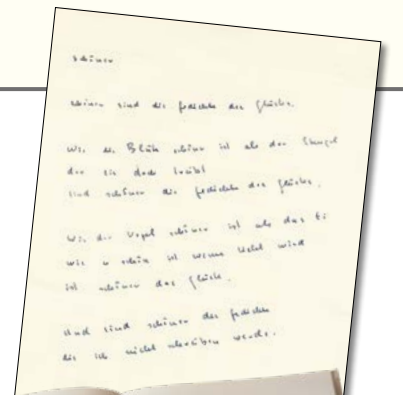 schöner
schöner sind die gedichte des glücks.
wie die Blüte schöner ist als der Stengel
der sie doch treibt
sind schöner die gedichte des glücks.
wie der Vogel schöner ist als das Ei
wie es schön ist wenn Licht wird
ist schöner das glück.
und sind schöner die gedichte
die ich nicht schreiben werde.